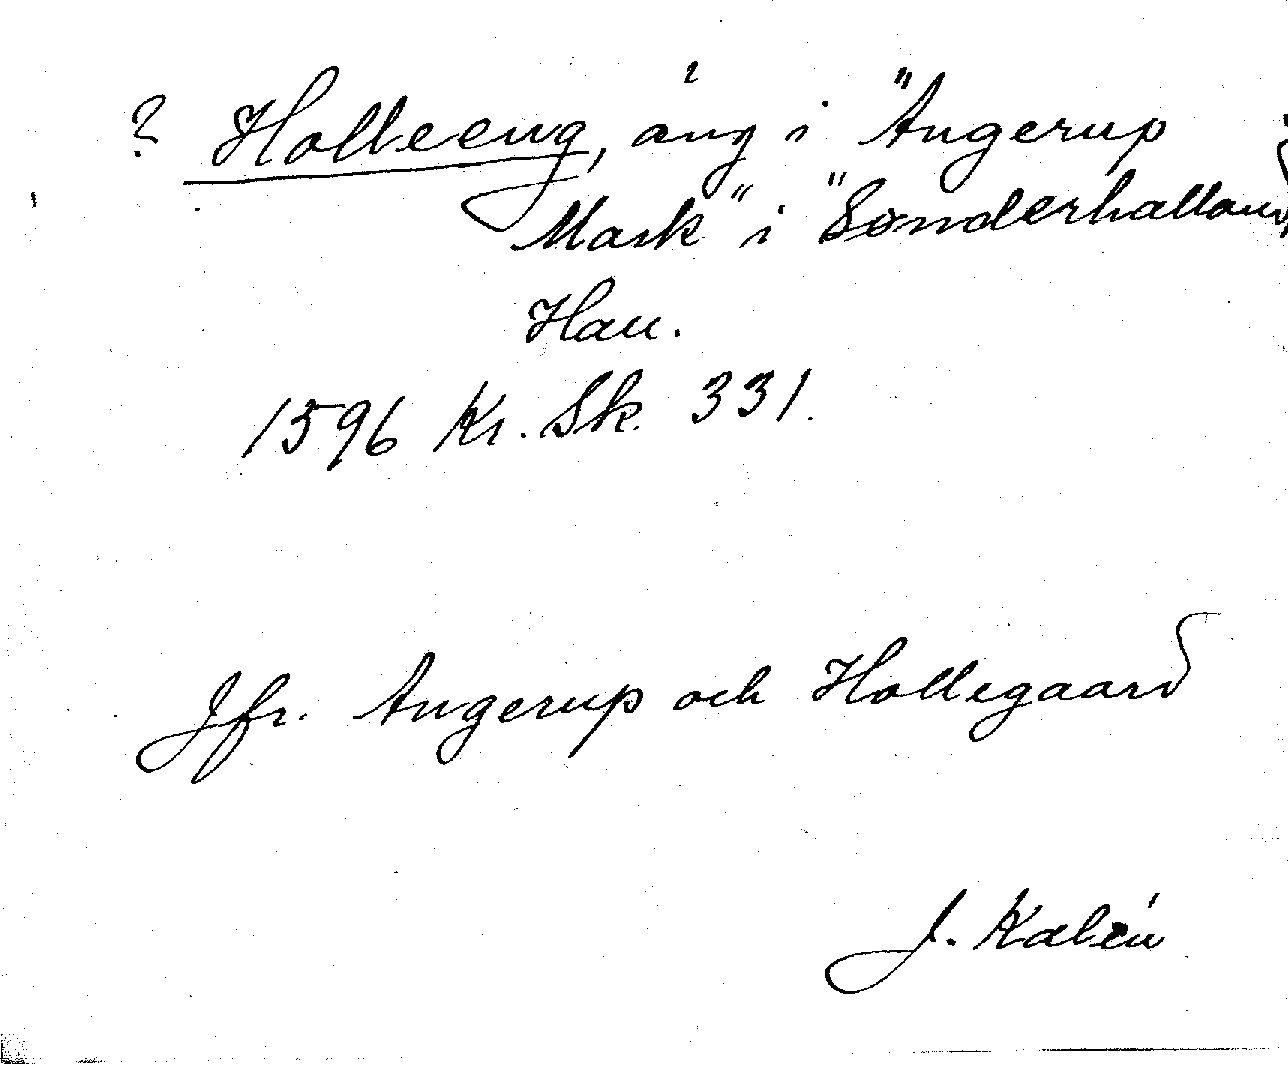 ? Holleeng, äng i "Angerup
Mark" i "Sønderhalland
Hau.
1596 Kr. Sk. 331.
Jfr. Angerup och Hollegaard
J. Kalén